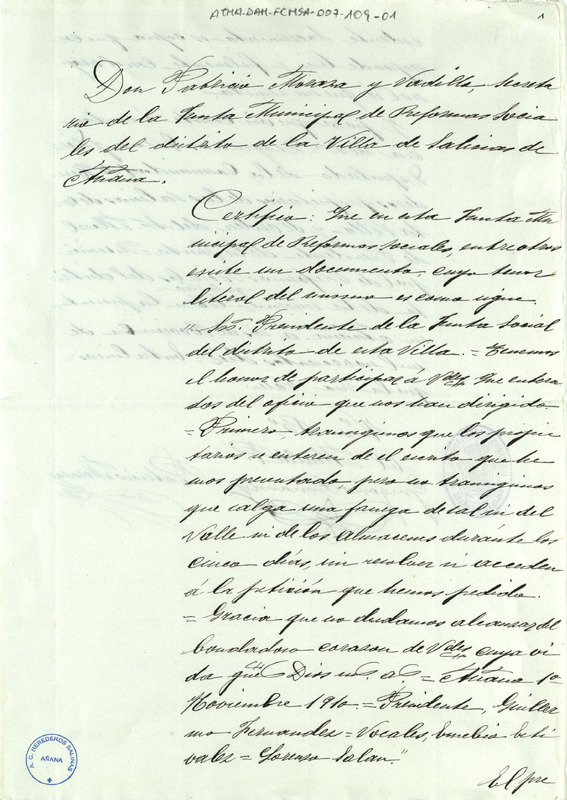 ATHA-DAH-FCMSA-007-109-01
1
Don Fabricio Moraza y Vadillo, Secreta
rio de la Junta Municipal de Reformas Socia
les del distrito de la Villa de Salinas de
Añana.
Certifico: Que en esta Junta Mu
nicipal de Reformas Sociales, entre otros
existe un documento, cuyo tenor
literal del mismo es como sigue.
"Sr. Presidente de la Junta Social
del distrito de esta Villa. = Tenemos
el honor de participar á Vdes que entera
dos del oficio que nos han dirigido
= Primero, transigimos que los propie
tarios se enteren de el escrito que he
mos presentado pero no transigimos
que salga una fanega de sal ni del
Valle ni de los Almacenes durante los
cinco días, sin resolver ni acceder
á la petición que hemos pedido.
= Gracia que no dudamos alcanzar del
bondadoso corazon de Vdes cuya vi
da gue Dios ms. as. = Añana 1º
Noviembre 1910 = Presidente, Guiller
mo Fernandez = Vocales, Eusebio Esti
valez = Lorenzo Salan"
El pre
A. C. HEREDEROS SALINAS
AÑANA